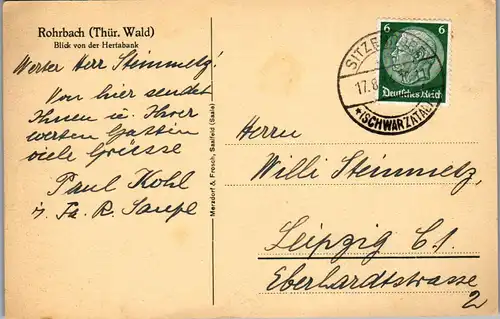 Rohrbach (Thür. Wald)
Blick von der Hertabank
Werter Herr Steinmetz!
Von hier sendet
Ihnen u. Ihrer
werten Gattin
viele Grüsse
Paul Kohl
i. Fa. R. Saupe
Mersdorf & Frosch, Saalfeld (Saale)
6 6
Deutsches Reich
SITZE
17.8.
*(SCHWARZATAL)
Herrn
Willi Steinmetz,
Leipzig C.1.
Eberhardtstrasse
2